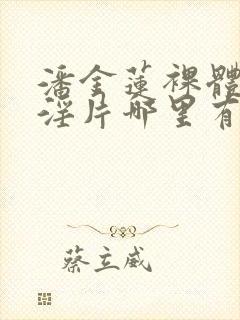 潘金蓮裸體
淫片哪里有
蔡立威